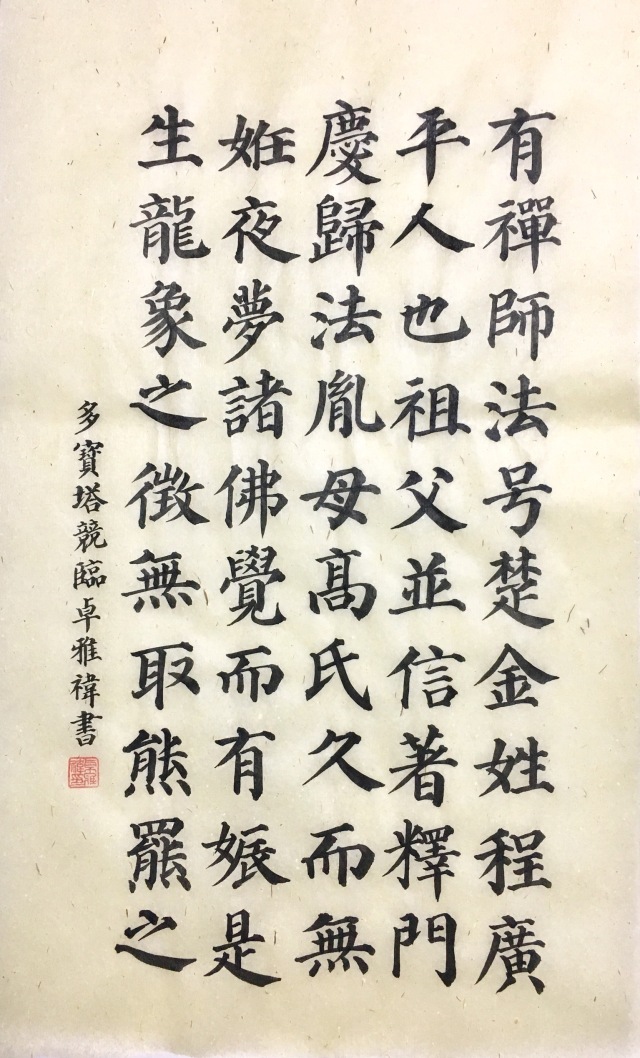 有禪師法号楚金姓程廣
平人也祖父並信著釋門
慶歸法胤母高氏久而無
姙夜夢諸佛覺而有娠是
生龍象之徵無取熊羆之
多寶塔競臨卓雅禕書